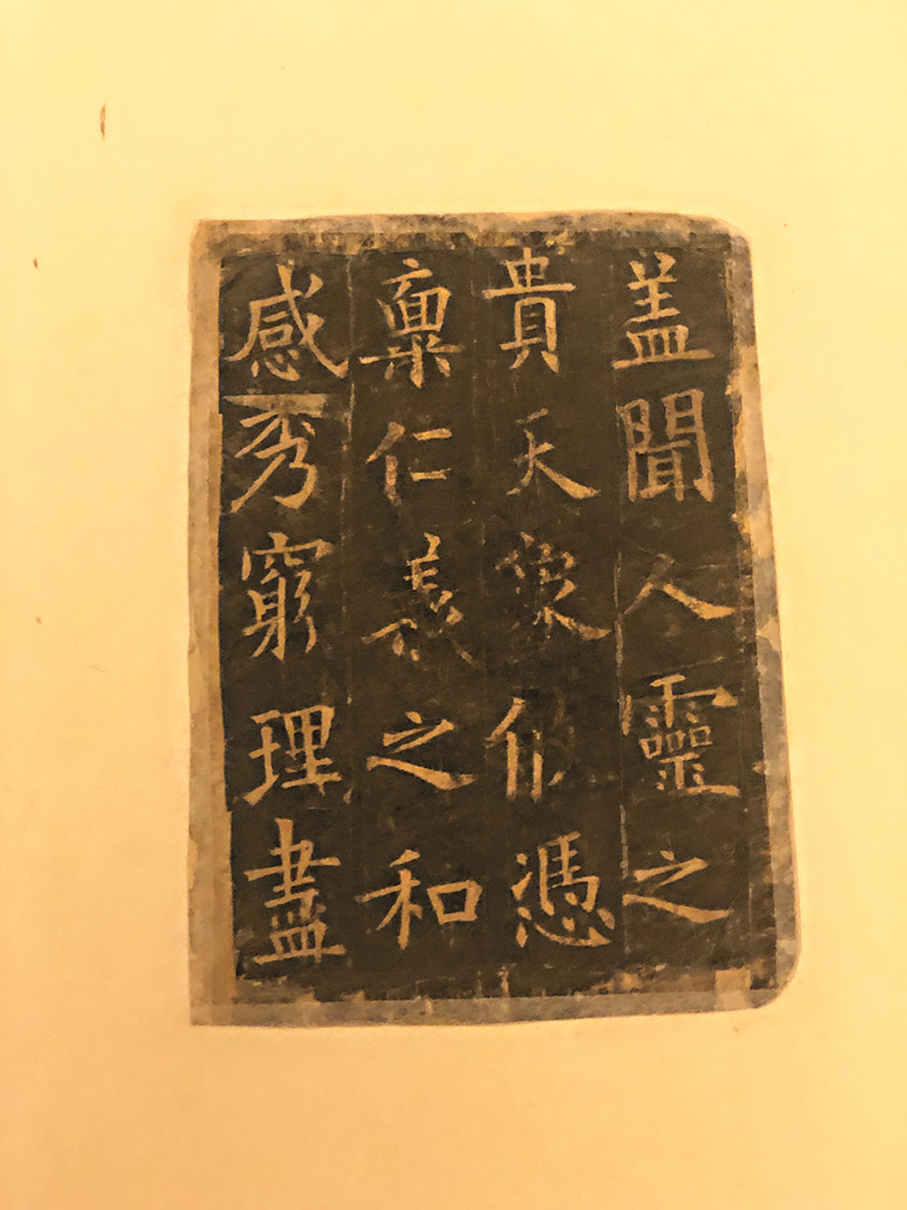 盖聞人靈之
貴天象憑
稟仁義之和
感秀窮理盡